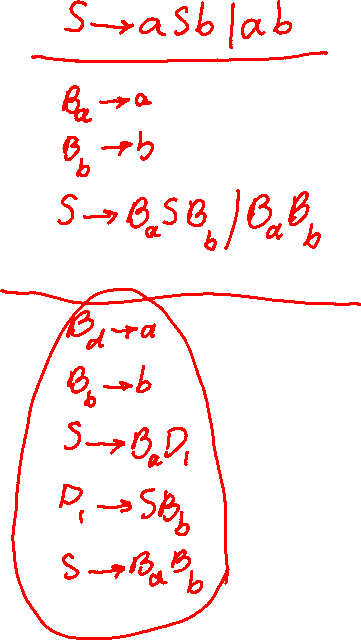 S→aSb/ab
B_a→a
B_b→b
S→B_aSB_b/B_aB_b
B_a→a
B_b→b
S→B_aD_1
D_1→SB_b
S→B_aB_b